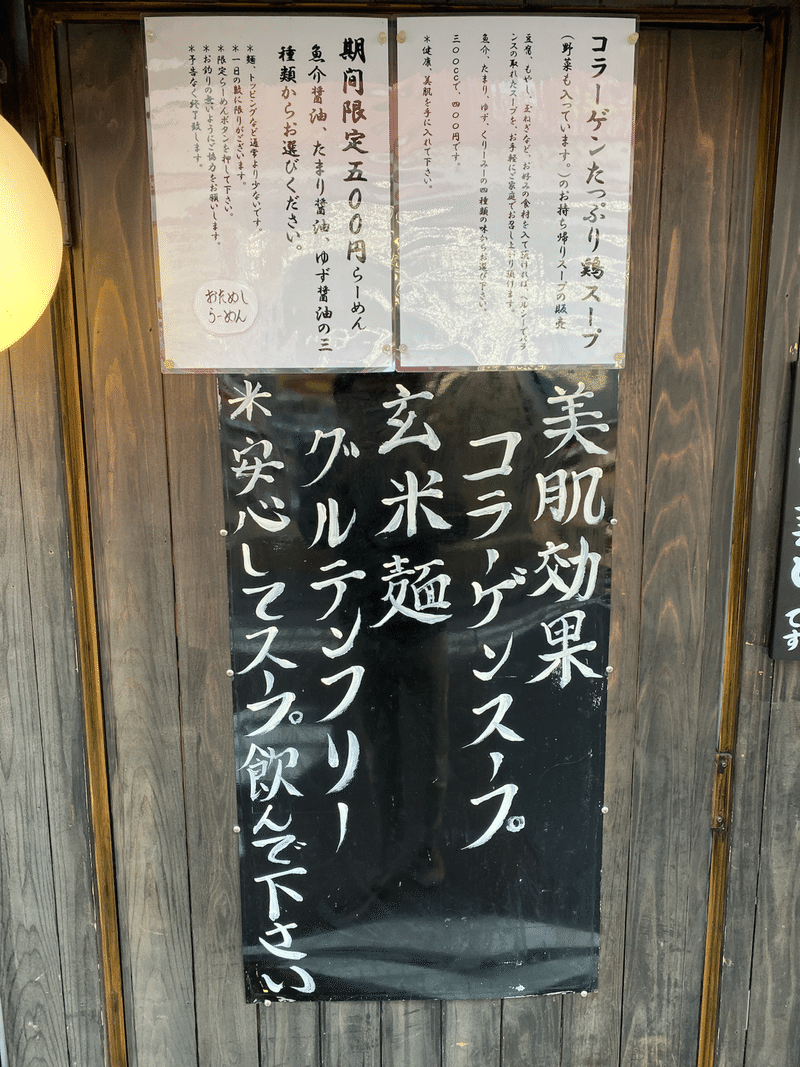 コラーゲンたっぷり鶏スープ
(野菜も入っています。)のお持ち帰りスープの販売
豆腐、もやし、玉ねぎなど、お好みの食材を入て頂ければ、ヘルシーでバラ
ンスの取れたスープを、お手軽にご家庭でお召し上がり頂けます。
魚介、たまり、ゆず、くりーみーの四種類の味からお選び下さい。
三〇〇ccで、四〇〇円です。
*健康、美肌を手に入れて下さい。
期間限定五〇〇円らーめん
魚介醤油、たまり醤油、ゆず醤油の三
種類からお選びください。
*麺、トッピングなど通常より少ないです。
*一日の数に限りがございます。
*限定らーめんボタンを押して下さい。
*お釣りの無いようにご協力をお願いします。
*予告なく終了致します。
おためし
らーめん
美肌効果
コラーゲンスープ
玄米麺
グルテンフリー
米安心してスープ飲んで下さい
です